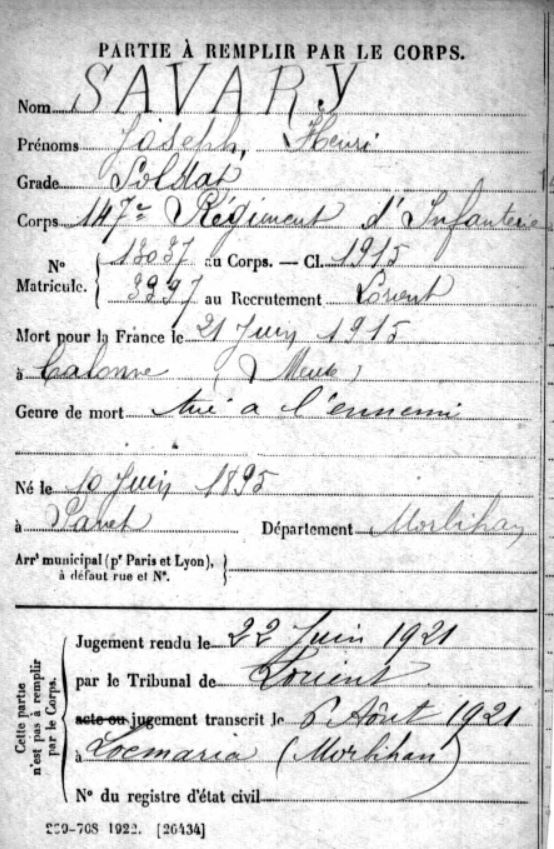 PARTIE À REMPLIR PAR LE CORPS.
Nom SAVARY
Prénoms Joseph, Henri
Grade Soldat
Corps 147e Régiment d'Infanterie
N° Matricule. { 13037 au Corps. — Cl. 1915
3397 au Recrutement Lorient
Mort pour la France le 21 Juin 1915
à Calonne (Meuse)
Genre de mort tué a l'ennemi
Né le 10 Juin 1895
à Département Morbihan
Arrt municipal (pr Paris et Lyon), }
à défaut rue et N°.
Cette partie n'est pas à remplir par le Corps.
Jugement rendu le 22 Juin 1921
par le Tribunal de Lorient
acte ou jugement transcrit le 6 Août 1921
à Locmaria (Morbihan)
N° du registre d'état civil
	-708 1922. [26434]